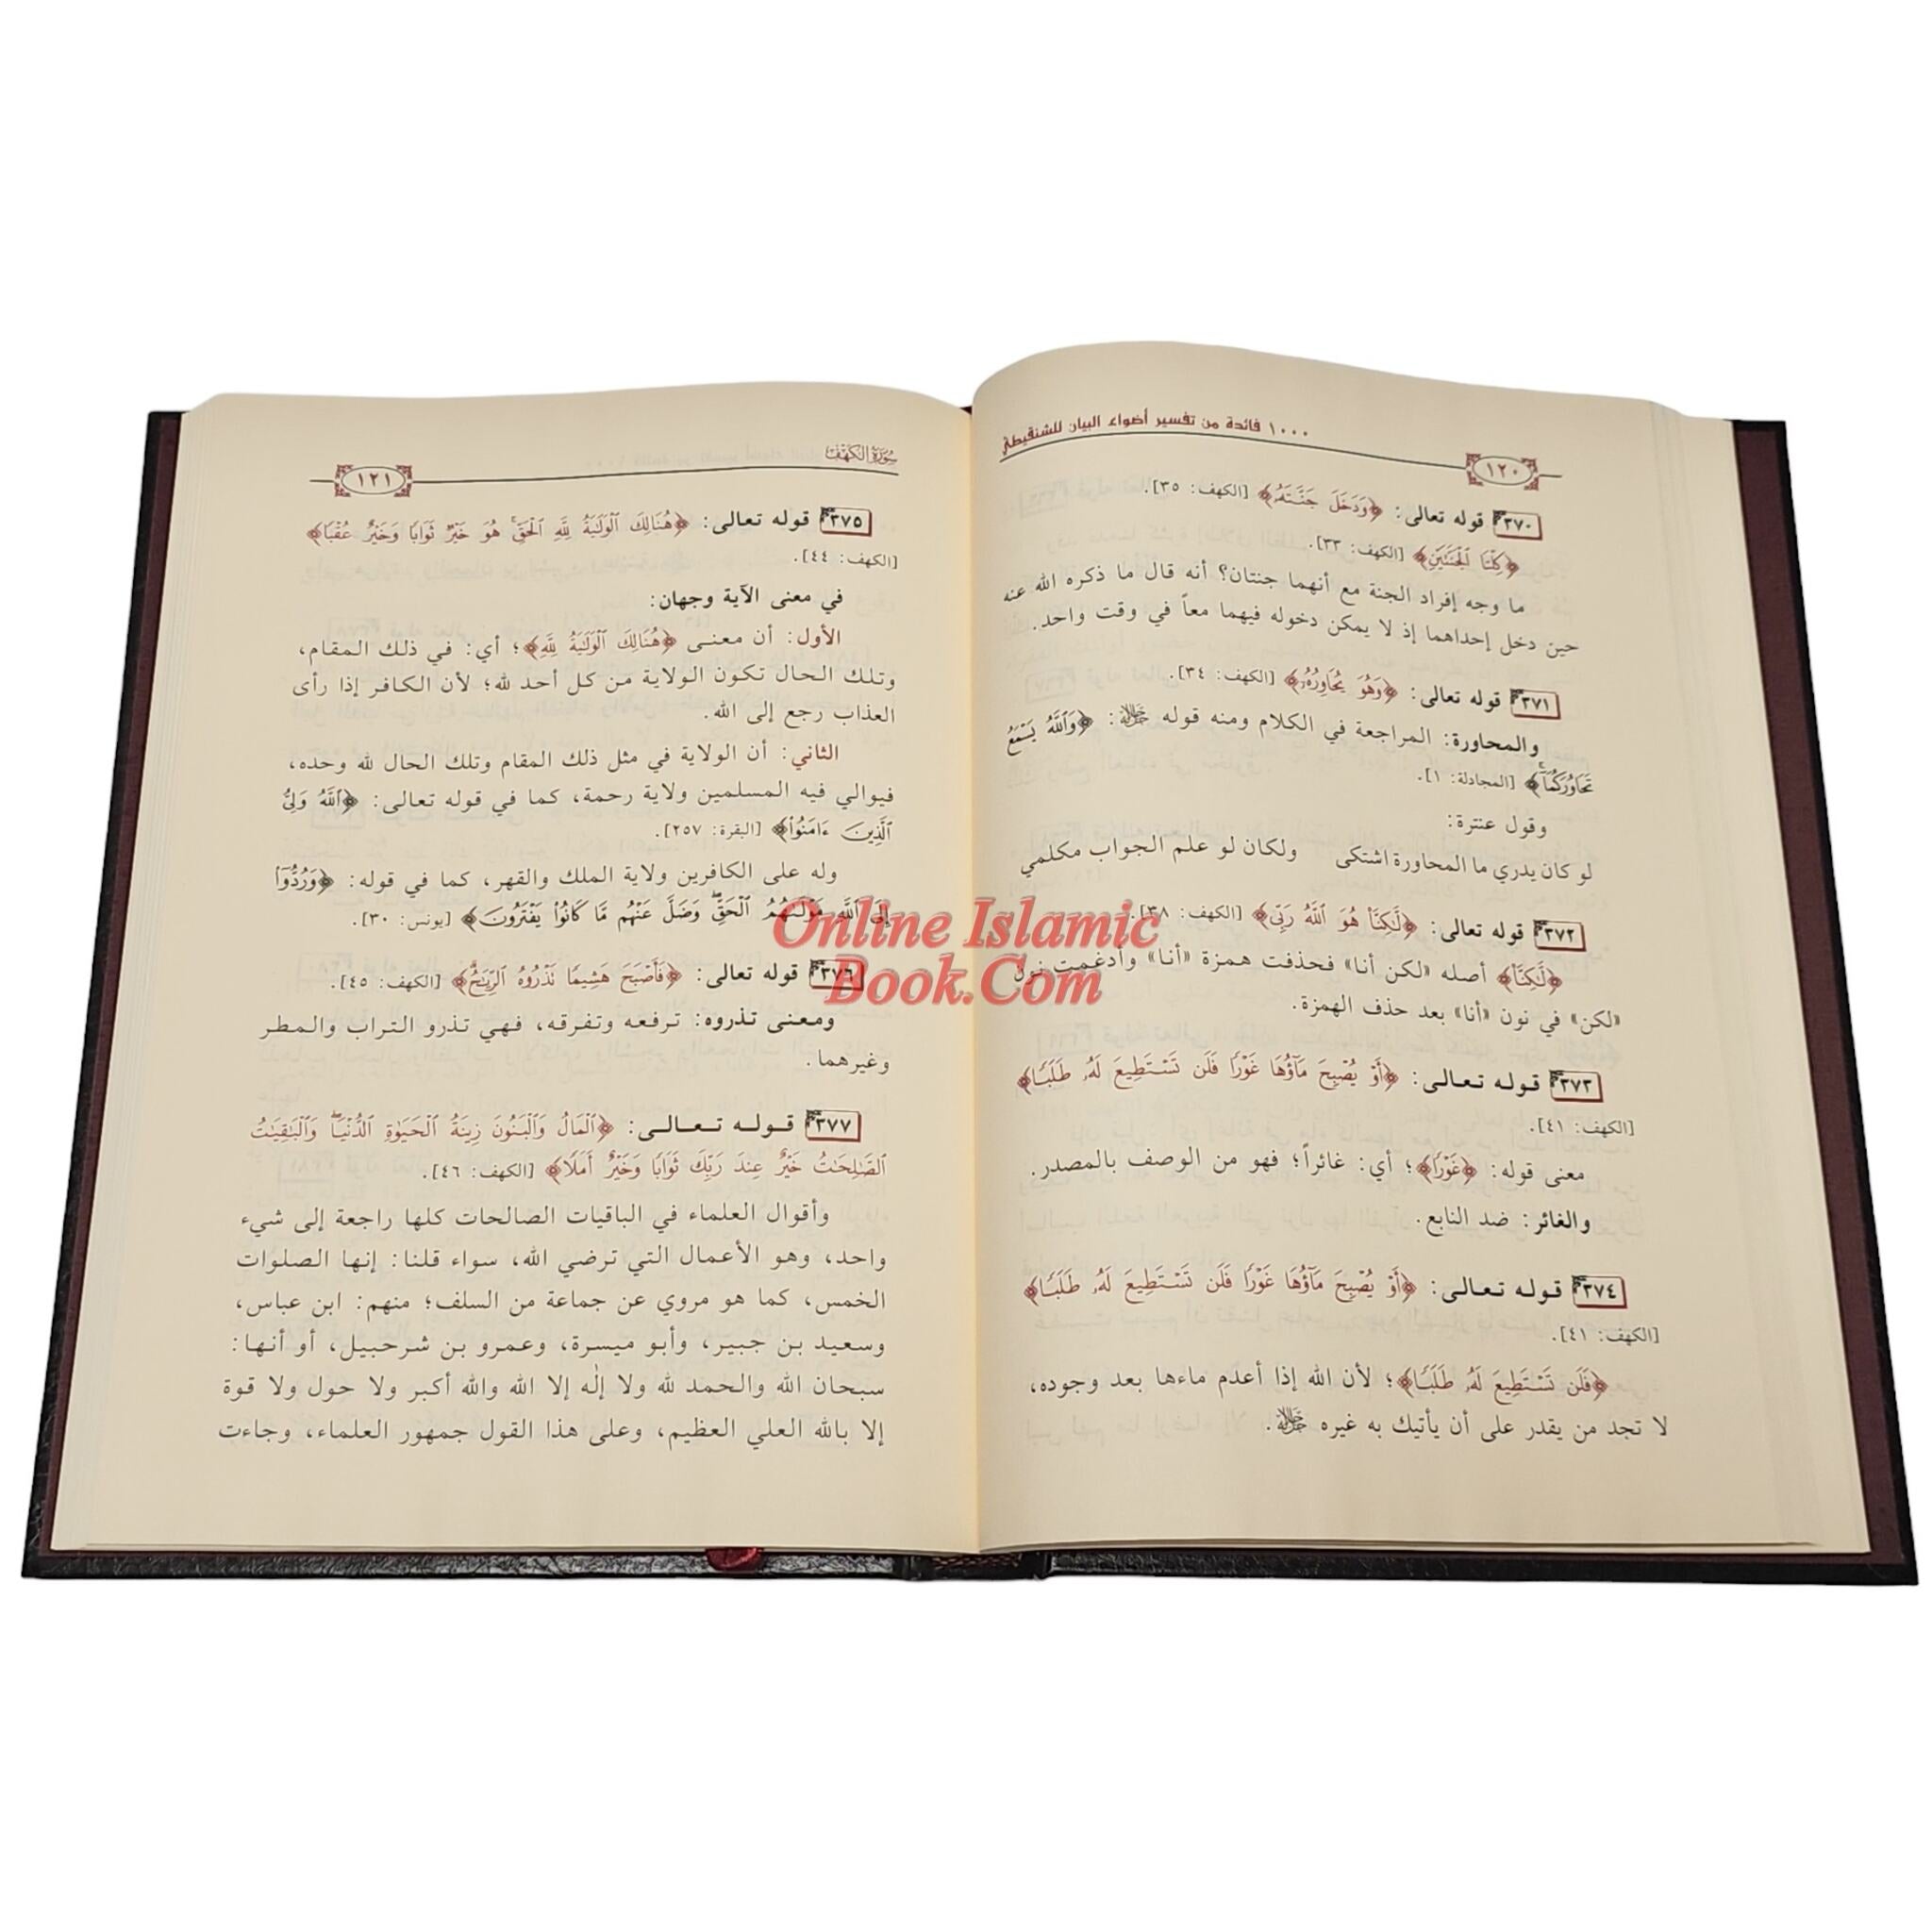 ١٠٠٠ فائدة من تفسير أضواء البيان للشنقيطي
١٢٠
٣٧٠ قوله تعالى: ﴿وَدَخَلَ جَنَّتَهُۥ﴾ [الكهف: ٣٥].
﴿كِلْتَا ٱلْجَنَّتَيْنِ﴾ [الكهف: ٣٣].
ما وجه إفراد الجنة مع أنهما جنتان؟ أنه قال ما ذكره الله عنه
حين دخل إحداهما إذ لا يمكن دخوله فيهما معاً في وقت واحد.
٣٧١ قوله تعالى: ﴿وَهُوَ يُحَاوِرُهُۥ﴾ [الكهف: ٣٤].
والمحاورة: المراجعة في الكلام ومنه قوله ﷻ: ﴿وَٱللَّهُ يَسْمَعُ
تَحَاوُرَكُمَآ﴾ [المجادلة: ١].
وقول عنترة:
لو كان يدري ما المحاورة اشتكى ولكان لو علم الجواب مكلمي
٣٧٢ قوله تعالى: ﴿لَّٰكِنَّا۠ هُوَ ٱللَّهُ رَبِّى﴾ [الكهف: ٣٨].
﴿لَّٰكِنَّا۠﴾ أصله «لكن أنا» فحذفت همزة «أنا» وأدغمت نون
«لكن» في نون «أنا» بعد حذف الهمزة.
٣٧٣ قوله تعالى: ﴿أَوْ يُصْبِحَ مَآؤُهَا غَوْرًا فَلَن تَسْتَطِيعَ لَهُۥ طَلَبًا﴾
[الكهف: ٤١].
معنى قوله: ﴿غَوْرًا﴾؛ أي: غائراً؛ فهو من الوصف بالمصدر.
والغائر: ضد النابع.
٣٧٤ قوله تعالى: ﴿أَوْ يُصْبِحَ مَآؤُهَا غَوْرًا فَلَن تَسْتَطِيعَ لَهُۥ طَلَبًا﴾
[الكهف: ٤١].
﴿فَلَن تَسْتَطِيعَ لَهُۥ طَلَبًا﴾؛ لأن الله إذا أعدم ماءها بعد وجوده،
لا تجد من يقدر على أن يأتيك به غيره ﷻ.
سُورَةُ الكَهْف
١٢١
٣٧٥ قوله تعالى: ﴿هُنَالِكَ ٱلْوَلَٰيَةُ لِلَّهِ ٱلْحَقِّ ۚ هُوَ خَيْرٌ ثَوَابًا وَخَيْرٌ عُقْبًا﴾
[الكهف: ٤٤].
في معنى الآية وجهان:
الأول: أن معنى ﴿هُنَالِكَ ٱلْوَلَٰيَةُ لِلَّهِ﴾؛ أي: في ذلك المقام،
وتلك الحال تكون الولاية من كل أحد لله؛ لأن الكافر إذا رأى
العذاب رجع إلى الله.
الثاني: أن الولاية في مثل ذلك المقام وتلك الحال لله وحده،
فيوالي فيه المسلمين ولاية رحمة، كما في قوله تعالى: ﴿ٱللَّهُ وَلِىُّ
ٱلَّذِينَ ءَامَنُوا۟﴾ [البقرة: ٢٥٧].
وله على الكافرين ولاية الملك والقهر، كما في قوله: ﴿وَرُدُّوٓا۟
إِلَى ٱللَّهِ مَوْلَىٰهُمُ ٱلْحَقِّ ۖ وَضَلَّ عَنْهُم مَّا كَانُوا۟ يَفْتَرُونَ﴾ [يونس: ٣٠].
٣٧٦ قوله تعالى: ﴿فَأَصْبَحَ هَشِيمًا تَذْرُوهُ ٱلرِّيَٰحُ﴾ [الكهف: ٤٥].
ومعنى تذروه: ترفعه وتفرقه، فهي تذرو التراب والمطر
وغيرهما.
٣٧٧ قوله تعالى: ﴿ٱلْمَالُ وَٱلْبَنُونَ زِينَةُ ٱلْحَيَوٰةِ ٱلدُّنْيَا ۖ وَٱلْبَٰقِيَٰتُ
ٱلصَّٰلِحَٰتُ خَيْرٌ عِندَ رَبِّكَ ثَوَابًا وَخَيْرٌ أَمَلًا﴾ [الكهف: ٤٦].
وأقوال العلماء في الباقيات الصالحات كلها راجعة إلى شيء
واحد، وهو الأعمال التي ترضي الله، سواء قلنا: إنها الصلوات
الخمس، كما هو مروي عن جماعة من السلف؛ منهم: ابن عباس،
وسعيد بن جبير، وأبو ميسرة، وعمرو بن شرحبيل، أو أنها:
سبحان الله والحمد لله ولا إلٰه إلا الله والله أكبر ولا حول ولا قوة
إلا بالله العلي العظيم، وعلى هذا القول جمهور العلماء، وجاءت
Online Islamic
Book.Com